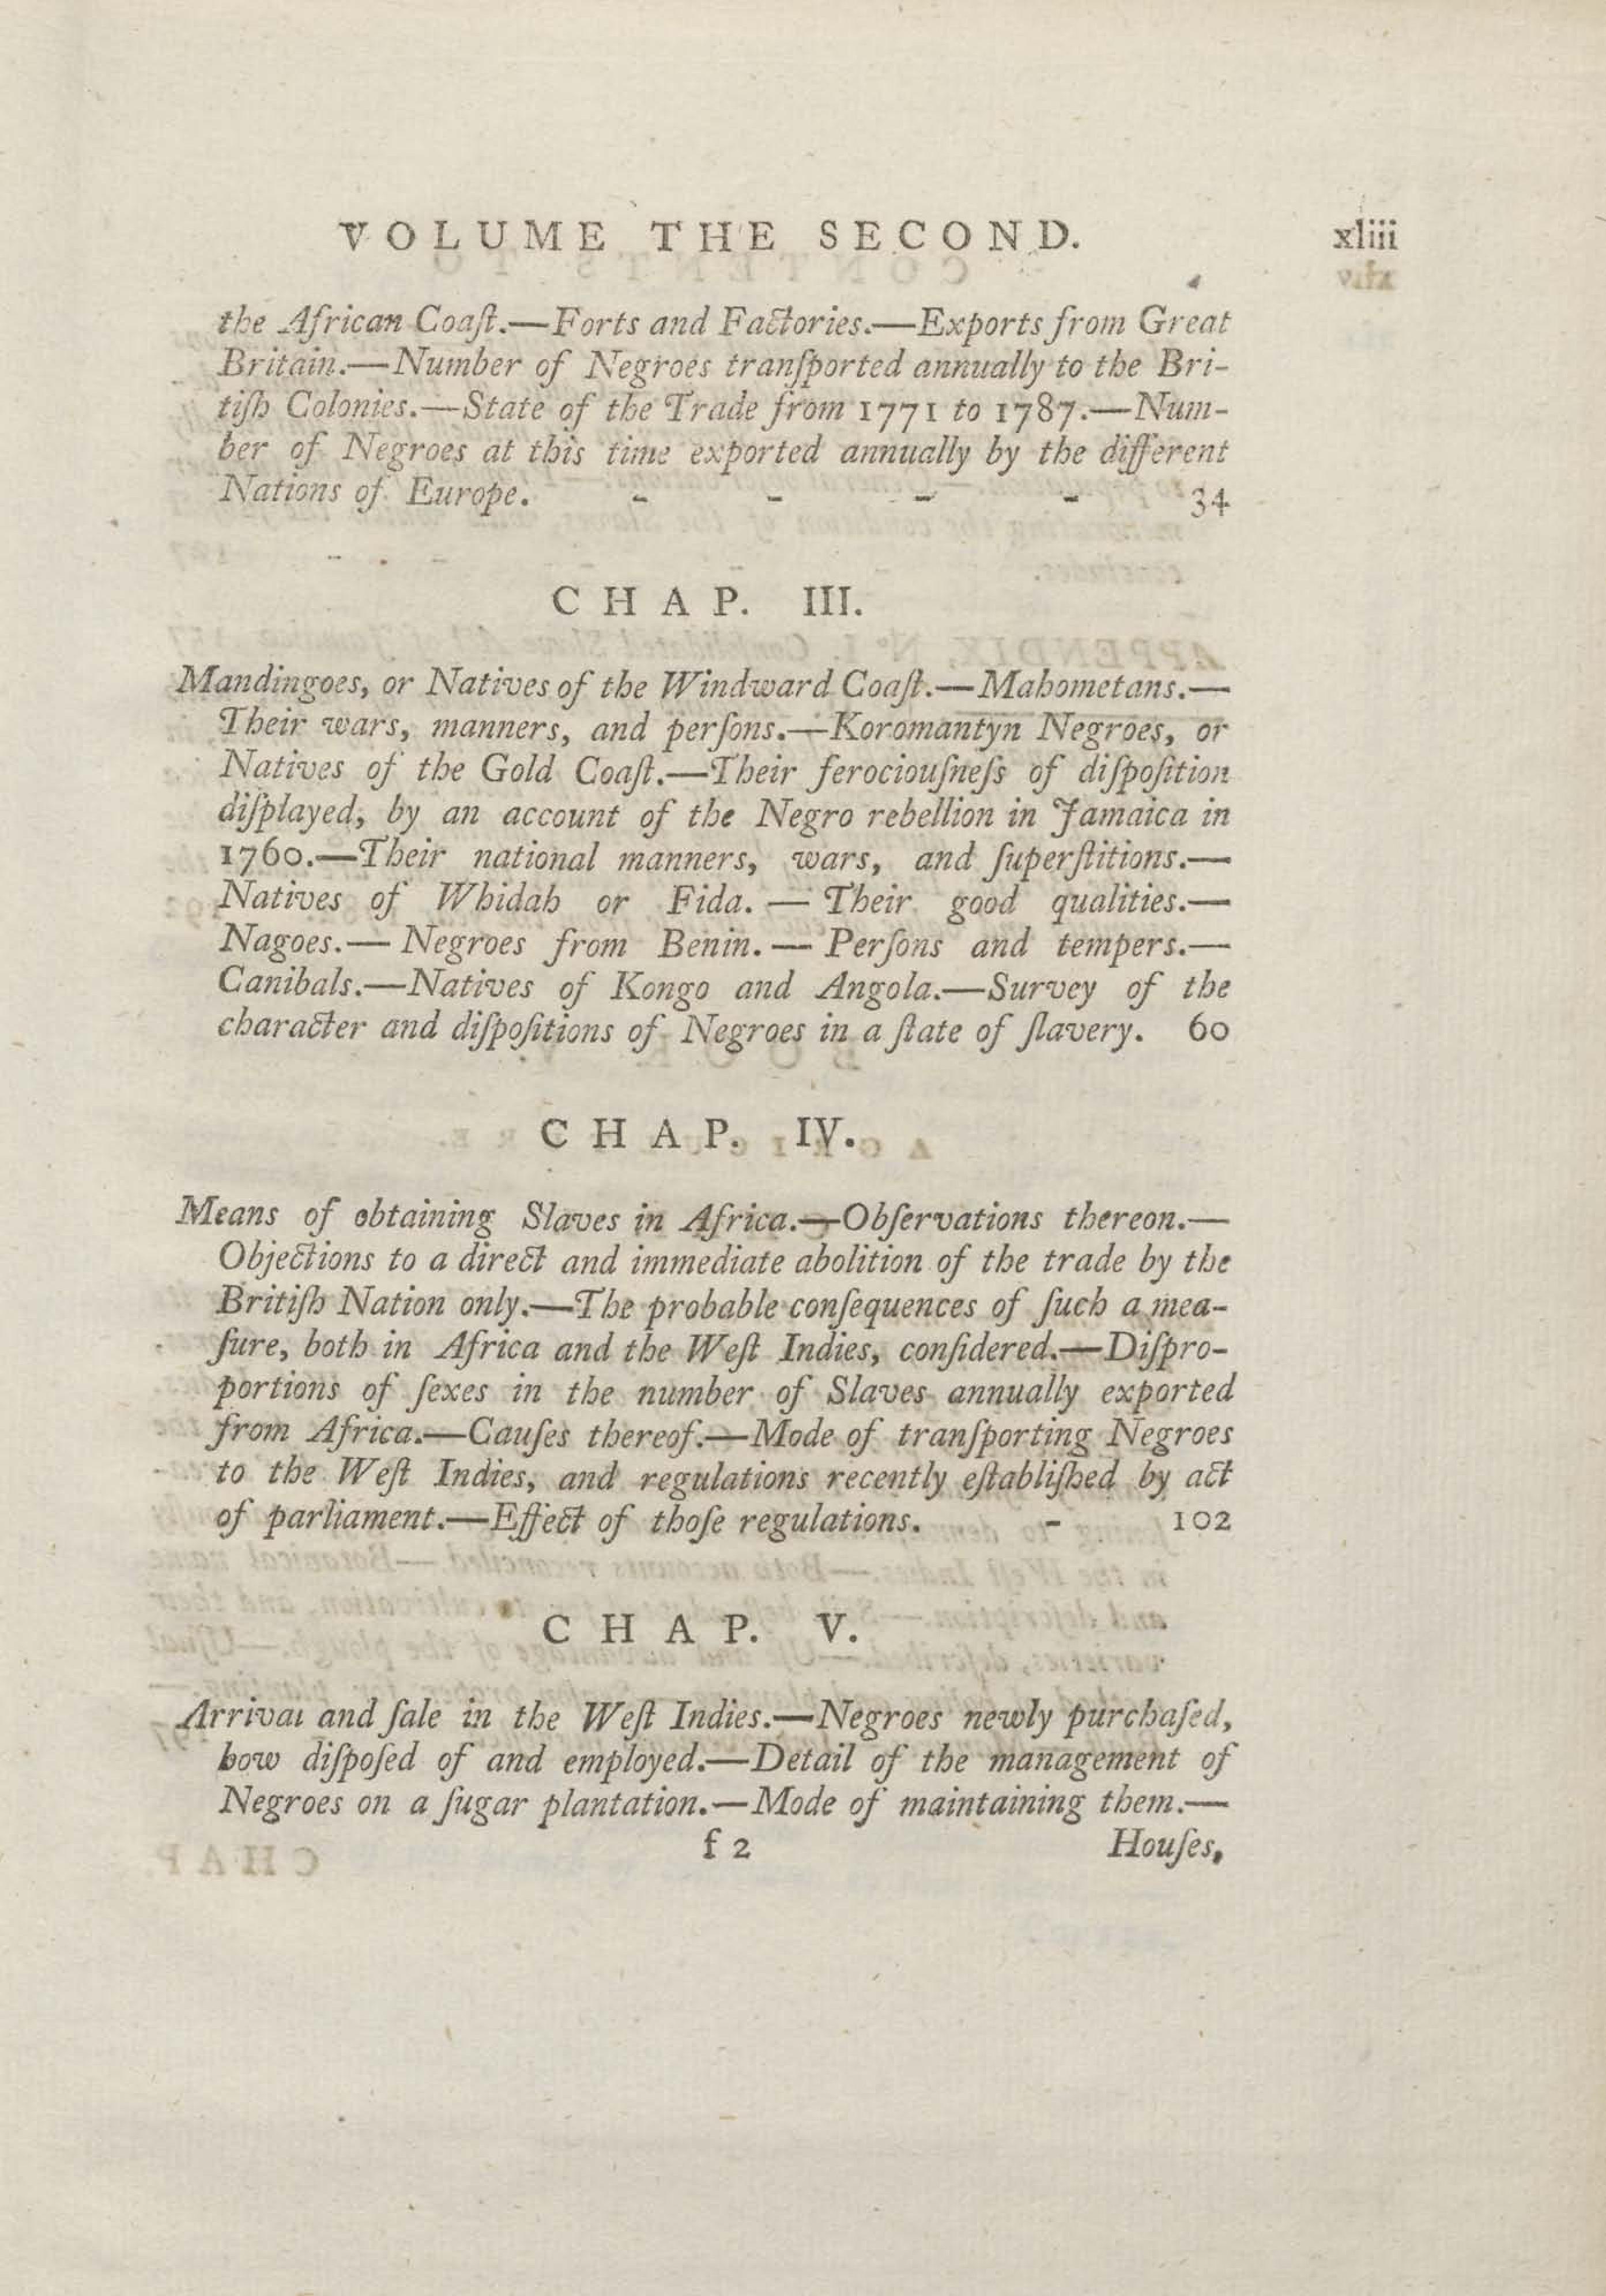 VOLUME THE SECOND. xliii
the African Coaſt.—Forts and Factories.—Exports from Great
Britain.—Number of Negroes tranſported annually to the Bri-
tiſh Colonies.—State of the Trade from 1771 to 1787.—Num-
ber of Negroes at this time exported annually by the different
Nations of Europe. - - - - 34
CHAP. III.
Mandingoes, or Natives of the Windward Coaſt.—Mahometans.—
Their wars, manners, and perſons.—Koromantyn Negroes, or
Natives of the Gold Coaſt.—Their ferociouſneſs of diſpoſition
diſplayed, by an account of the Negro rebellion in Jamaica in
1760.—Their national manners, wars, and ſuperſtitions.—
Natives of Whidah or Fida.—Their good qualities.—
Nagoes.—Negroes from Benin.—Perſons and tempers.—
Canibals.—Natives of Kongo and Angola.—Survey of the
character and diſpoſitions of Negroes in a ſtate of ſlavery. 60
CHAP. IV.
Means of obtaining Slaves in Africa.—Obſervations thereon.—
Objections to a direct and immediate abolition of the trade by the
Britiſh Nation only.—The probable conſequences of ſuch a mea-
ſure, both in Africa and the Weſt Indies, conſidered.—Diſpro-
portions of ſexes in the number of Slaves annually exported
from Africa.—Cauſes thereof.—Mode of tranſporting Negroes
to the Weſt Indies, and regulations recently eſtabliſhed by act
of parliament.—Effect of thoſe regulations. - 102
CHAP. V.
Arrival and ſale in the Weſt Indies.—Negroes newly purchaſed,
how diſpoſed of and employed.—Detail of the management of
Negroes on a ſugar plantation.—Mode of maintaining them.—
f 2 Houſes,